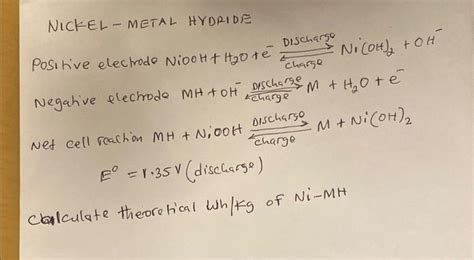 NICKEL - METAL HYDRIDE
Positive electrode NiOOH + H₂O + e⁻ Discharge ⇌ charge Ni(OH)₂ + OH⁻
Negative electrode MH + OH⁻ Discharge ⇌ charge M + H₂O + e⁻
Net cell reaction MH + NiOOH Discharge ⇌ charge M + Ni(OH)₂
E⁰ = 1.35V (discharge)
Calculate theoretical Wh/kg of Ni-MH